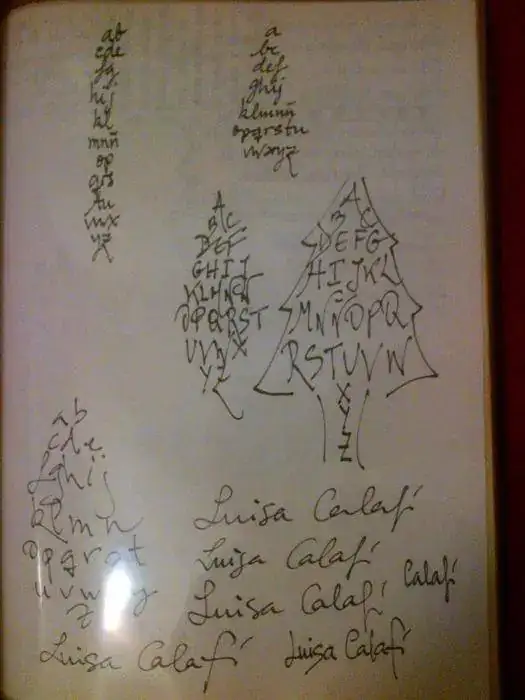 ab
cde
fg
hij
kl
mnñ
op
qrs
tu
vwx
yz
a
bc
def
ghij
klmnñ
opqrstu
vwxyz
A
BC
DEF
GHIJ
KLMNÑ
OPQRST
UVWX
YZ
A
BC
DEFG
HIJKL
MNÑOPQ
RSTUVW
X
Y
Z
ab
cde
fghij
klmn
opqrst
uvwxy
z
Luisa Calafí
Luisa Calafí
Luisa Calafí
Calafí
Luisa Calafí
Luisa Calafí